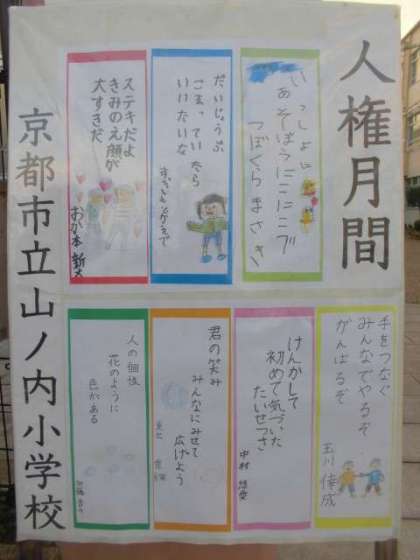 人権月間
いっしょに
あそぼうにこにこブ
つぼくらまさき
だいじょうぶ
こまっていたら
いいたいな
ステキだよ
きみのえ顔が
大すきだ
おか本
手をつなぐ
みんなでやるぞ
がんばるぞ
玉川
けんかして
初めて気づいた
たいせつさ
中村
君の笑み
みんなにみせて
広げよう
人の個性
花のように
色がある
京都市立山ノ内小学校